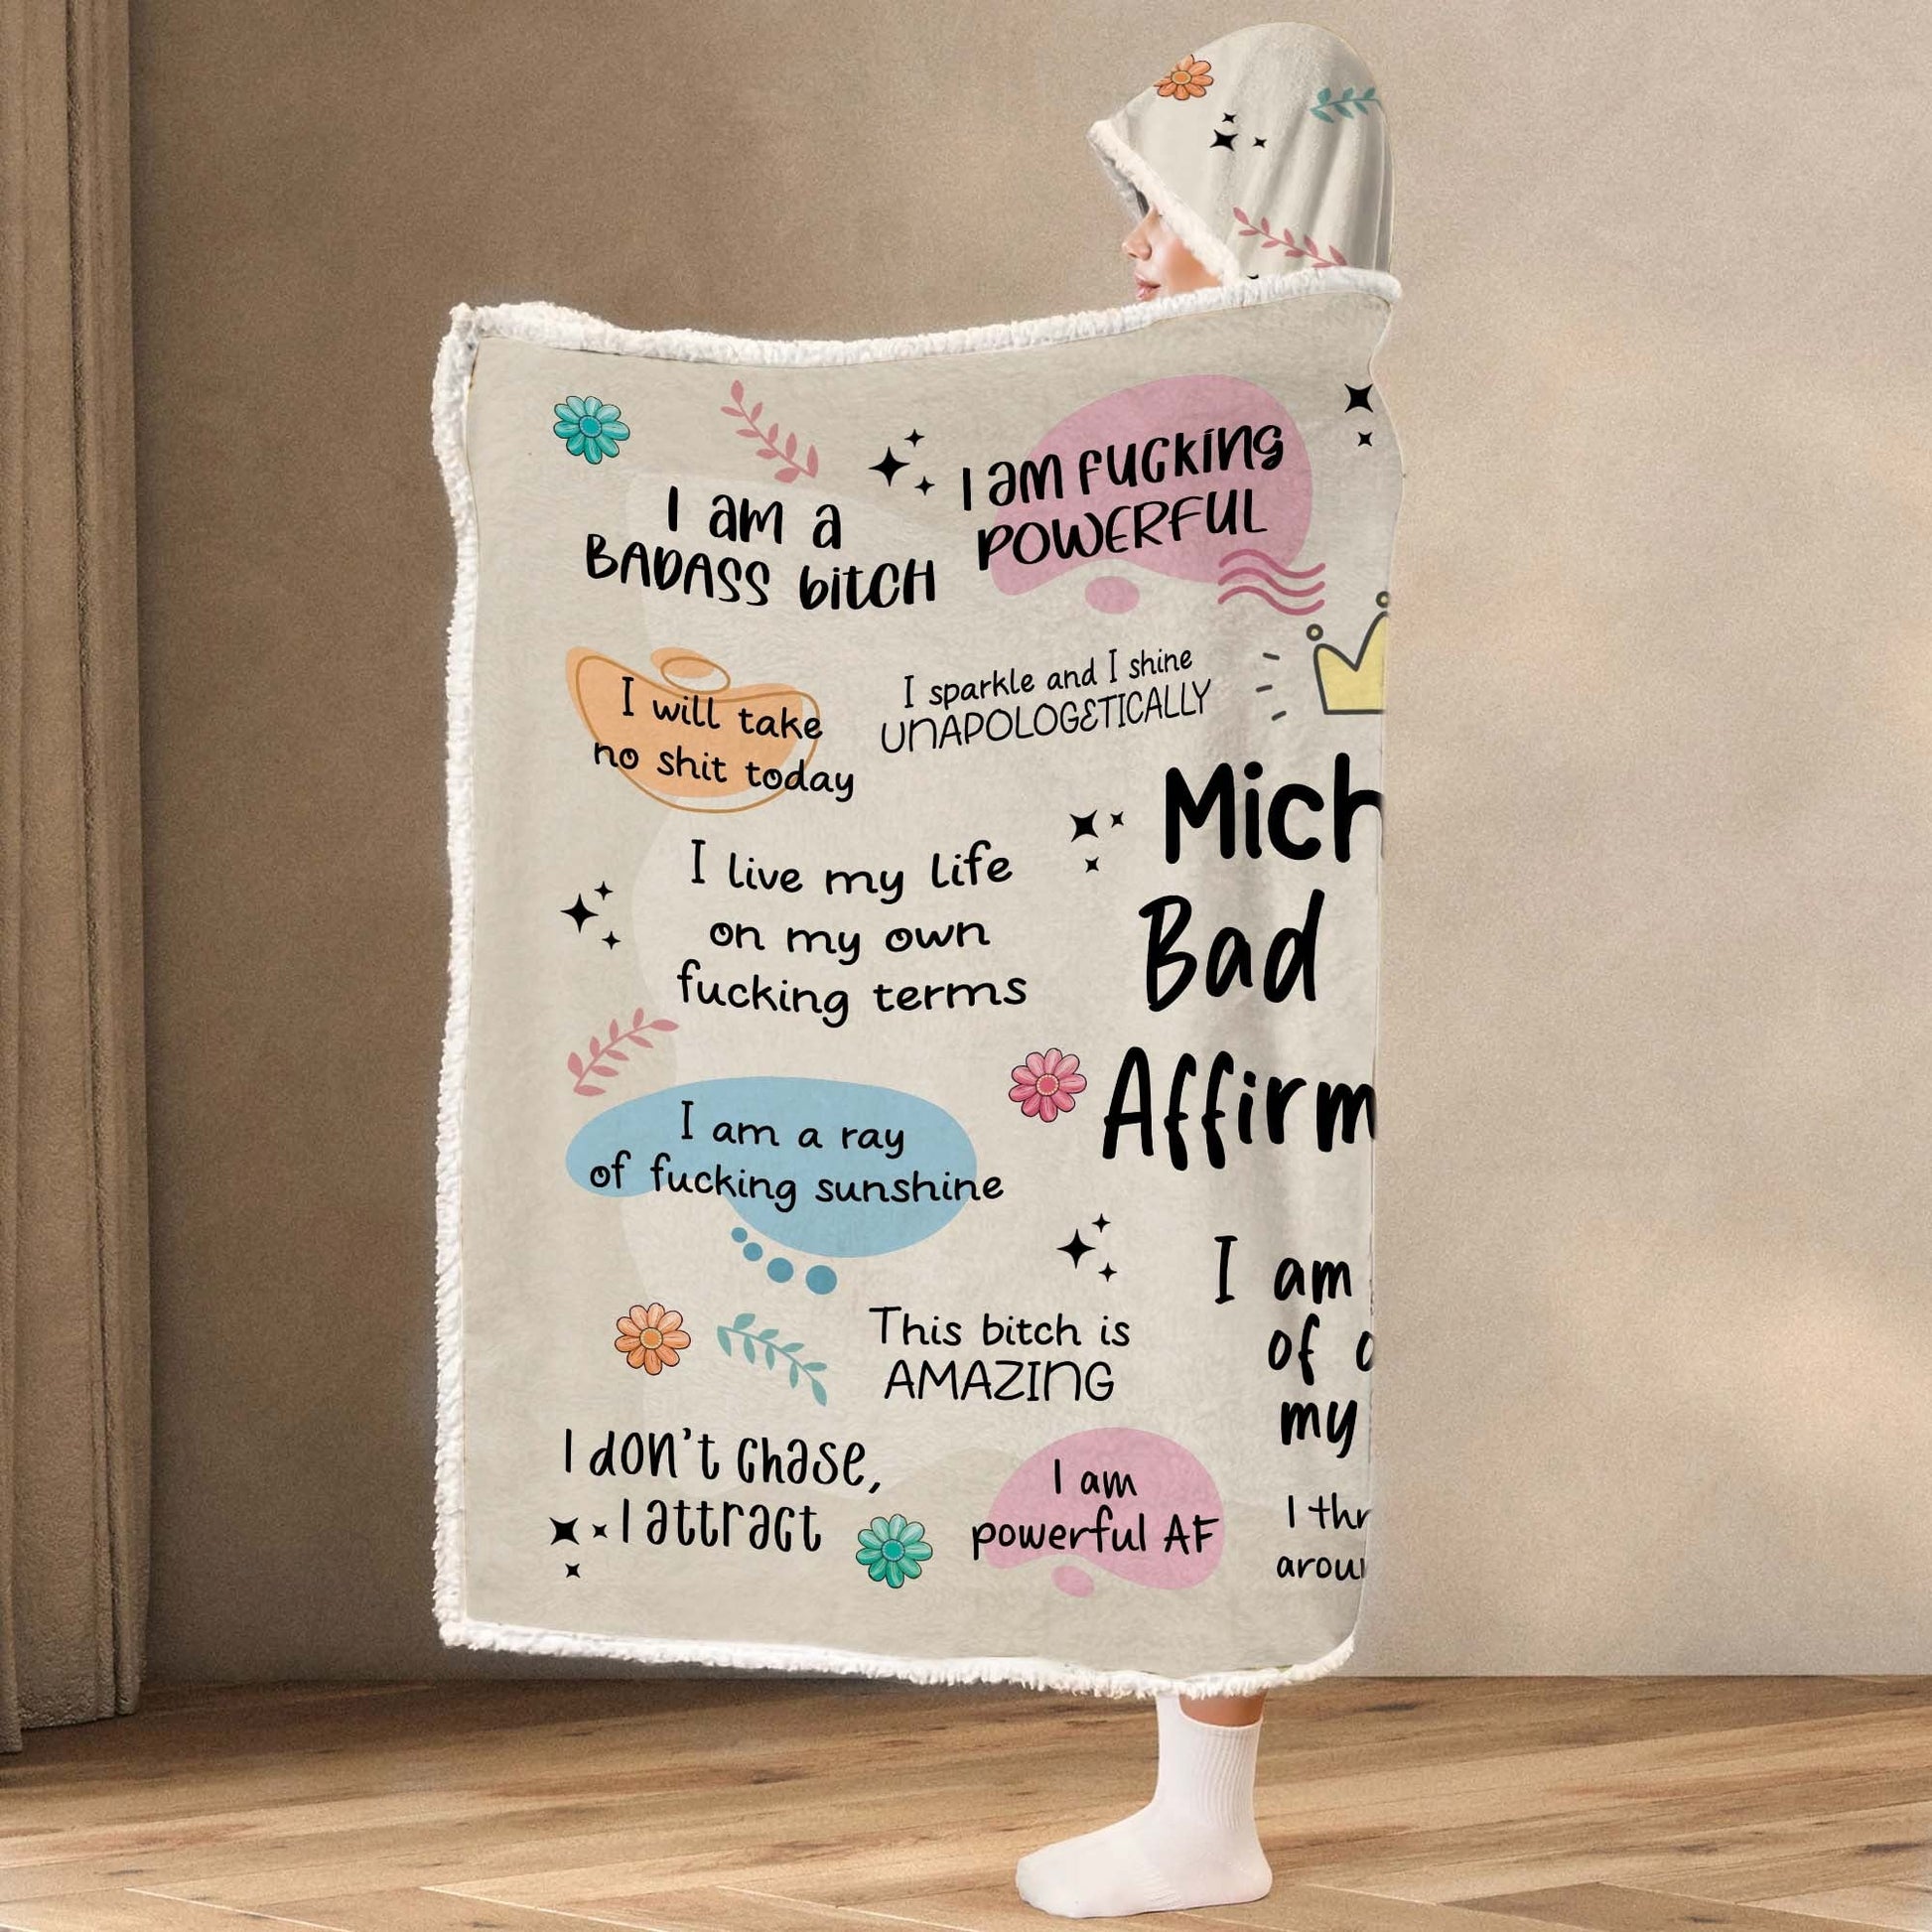 I am a
BADASS bitCH
I am fucking
POWERFUL
I will take
no shit today
I sparkle and I shine
UNAPOLOGETICALLY
I live my life
on my own
fucking terms
Mich
Bad
Affirm
I am a ray
of fucking sunshine
I am
of
my
This bitch is
AMAZING
I don't chase,
I attract
I am
powerful AF
I thr
arou